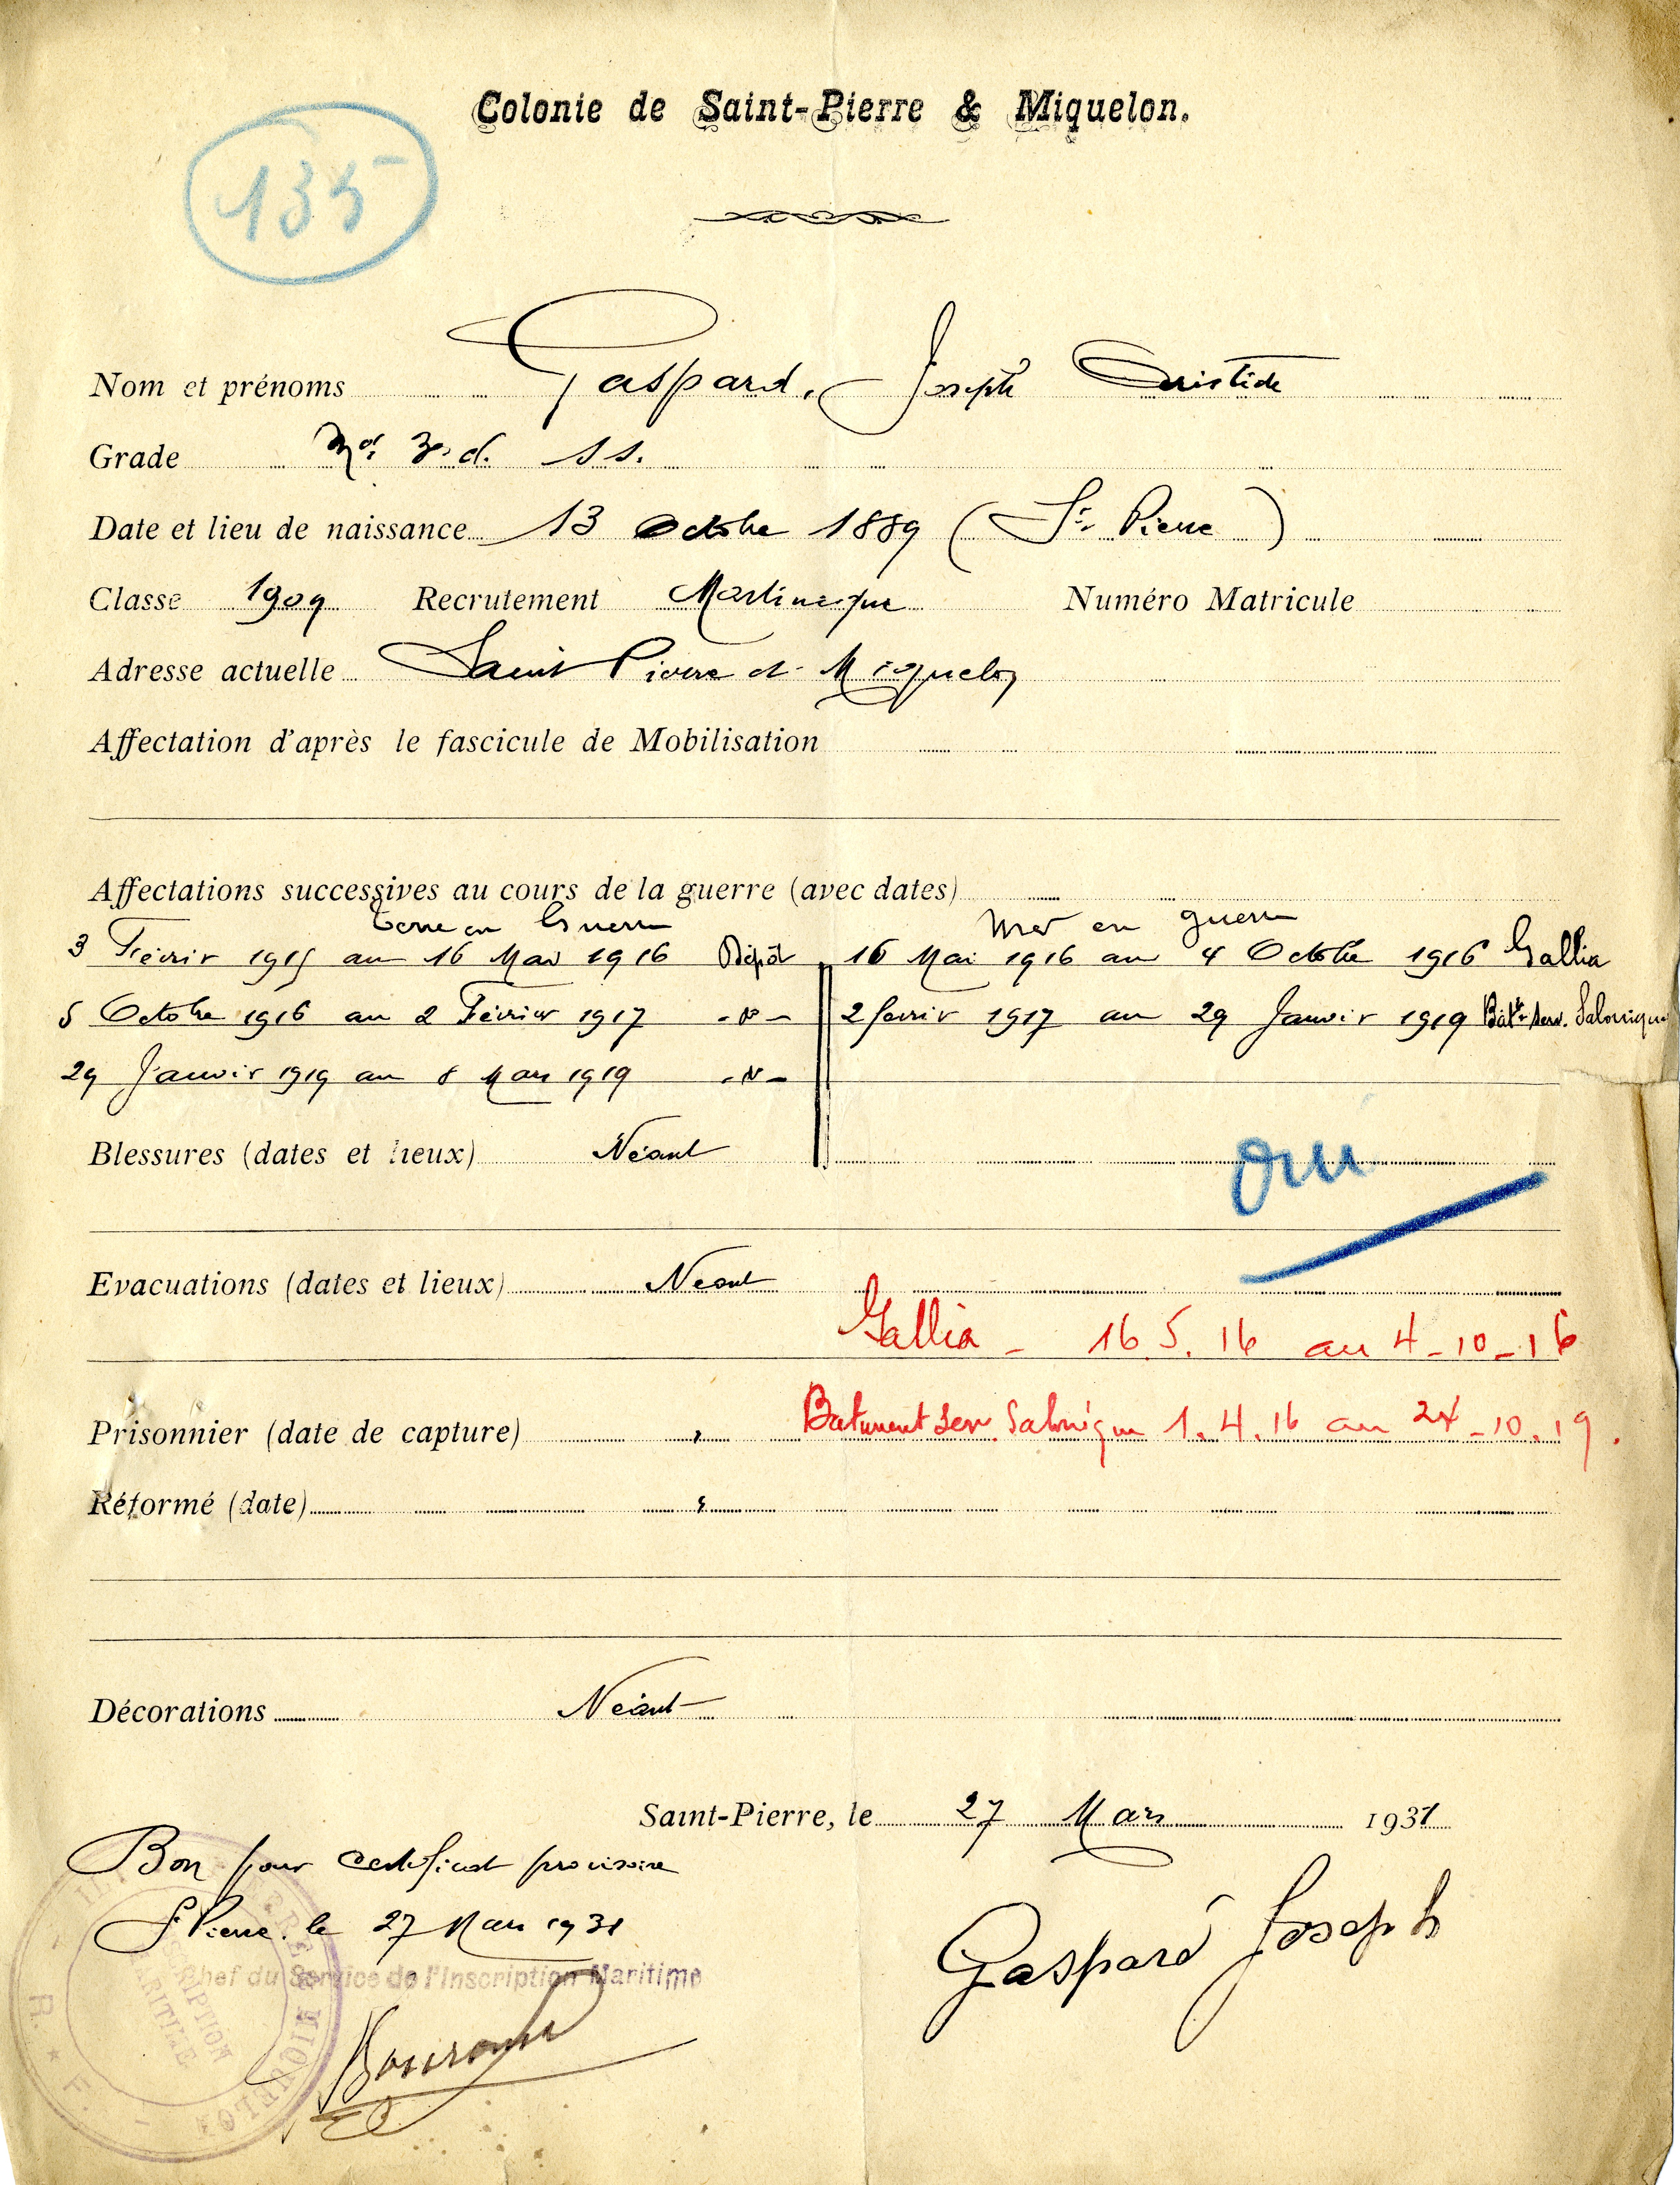 Colonie de Saint-Pierre & Miquelon.
135
Nom et prénoms Gaspard, Joseph Aristide
Grade Mot 3e d. ss.
Date et lieu de naissance 13 Octobre 1889 (St Pierre)
Classe 1909 Recrutement Martinique Numéro Matricule
Adresse actuelle Saint Pierre et Miquelon
Affectation d'après le fascicule de Mobilisation
Affectations successives au cours de la guerre (avec dates)
Terre en Guerre mer en guerre
3 Février 1915 au 16 Mai 1916 Dépôt 16 Mai 1916 au 4 Octobre 1916 Gallia
5 Octobre 1916 au 2 Février 1917 -d°- 2 fevrier 1917 au 29 Janvier 1919 Batt serv. Salonique
29 Janvier 1919 au 8 Mars 1919 -d°-
Blessures (dates et lieux) Néant
oui
Evacuations (dates et lieux) Néant
Gallia - 16.5.16 au 4-10-16
Prisonnier (date de capture) " Batiment Serv. Salonique 1.4.16 au 24-10.19.
Réformé (date) "
Décorations Néant
Saint-Pierre, le 27 Mars 1931
Bon pour certificat provisoire
St Pierre le 27 Mars 1931
Chef du Service de l'Inscription Maritime
Gaspard Joseph
INSCRIPTION MARITIME
R. F.